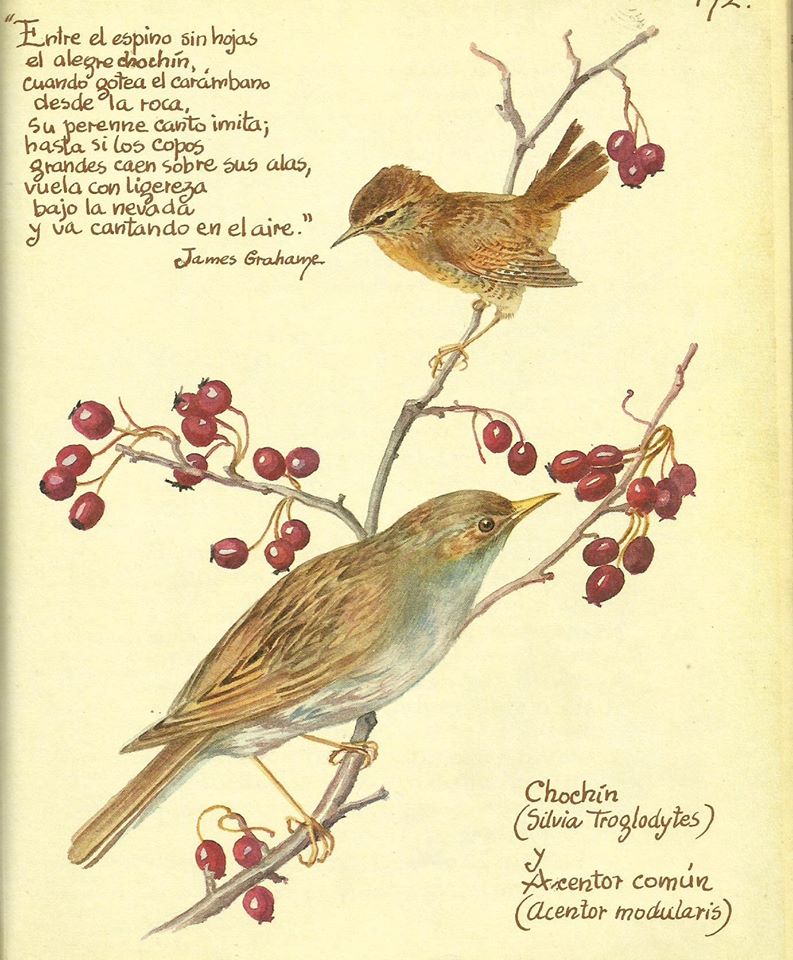 "Entre el espino sin hojas
el alegre chochín,
cuando gotea el carámbano
desde la roca,
su perenne canto imita;
hasta si los copos
grandes caen sobre sus alas,
vuela con ligereza
bajo la nevada
y va cantando en el aire."
James Grahame
Chochín
(Silvia Troglodytes)
y
Acentor común
(Acentor modularis)